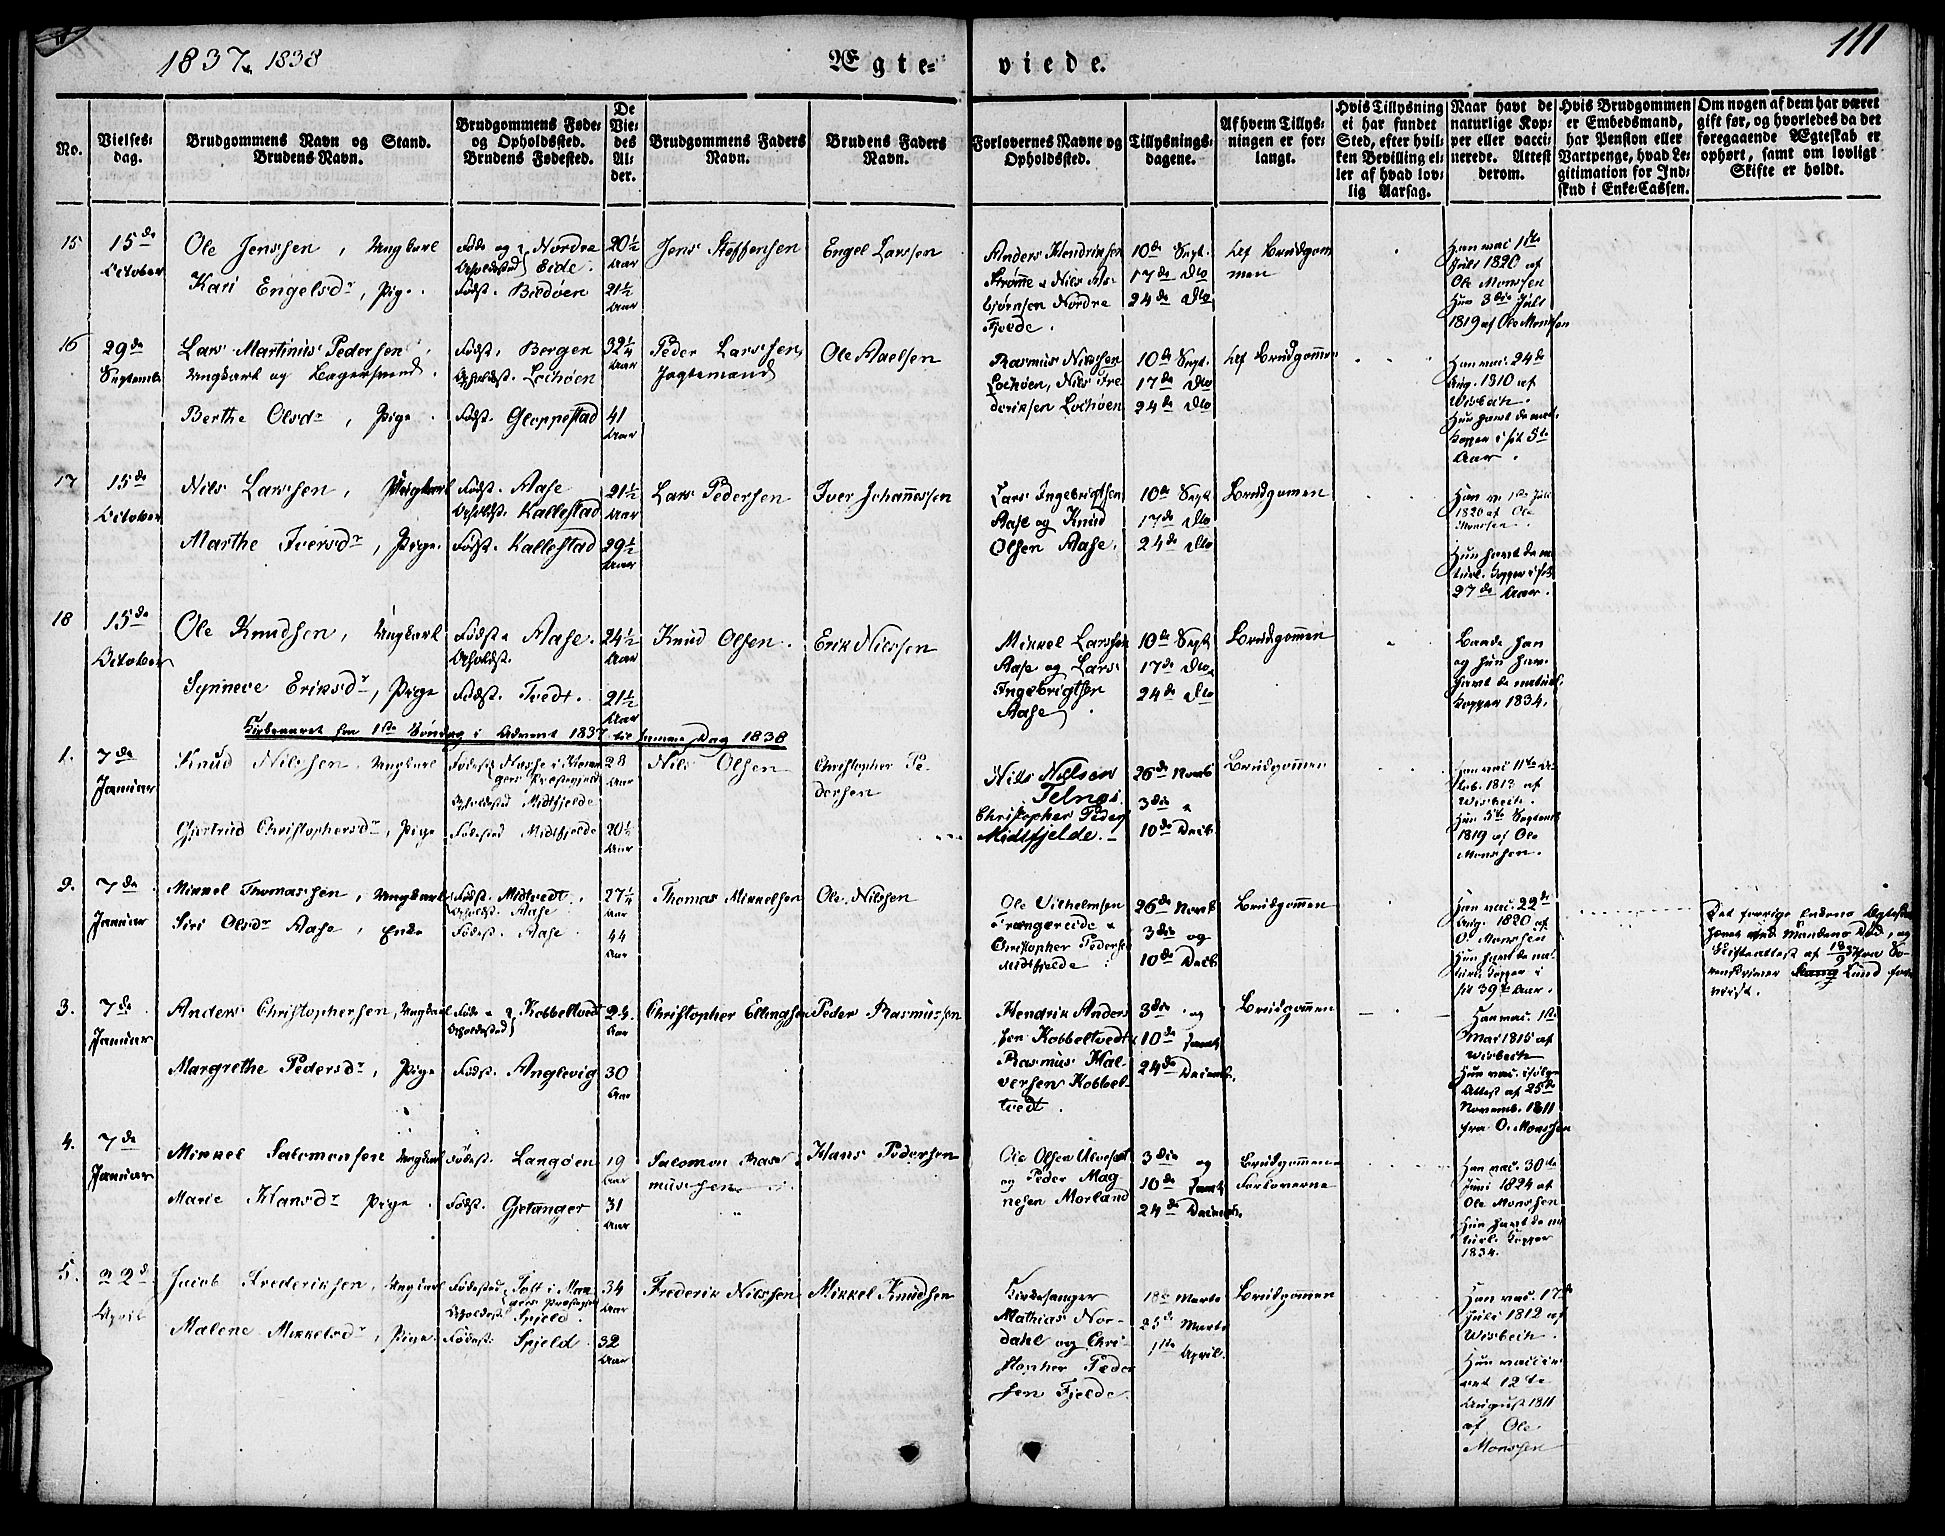 1837 & 1838
Egte-
viede.
111
No.
Vielses-
dag.
Brudgommens Navn og Stand.
Brudens Navn.
Brudgommens Føde-
og Opholdssted.
Brudens Fødested.
De
Vie-
des
Al-
der.
Brudgommens Faders
Navn.
Brudens Faders
Navn.
Forlovernes Navne og
Opholdssted.
Tillysnings-
dagene.
Af hvem Tillys-
ningen er for-
langt.
Hvis Tillysning
ei har fundet
Sted, efter hvil-
ken Bevilling el-
ler af hvad lov-
lig Aarsag.
Naar havt de
naturlige Kop-
per eller vacci-
nerede. Attest
derom.
Hvis Brudgommen
er Embedsmand,
har Pension eller
Vartpenge, hvad Le-
gitimation for Ind-
skud i Enke-Cassen.
Om nogen af dem har været
gift før, og hvorledes da det
foregaaende Ægteskab er
ophørt, samt om lovligt
Skifte er holdt.
15
15de
October
Ole Jenssen, Ungkarl
Kari Engelsdr, Pige.
Føde og Nordre
Opholdssted Eide.
Fødst. Bildøen
20½
Aar
21½
Aar
Jens Steffensen
Engel Larssen
Anders Hendriksen
Strømme & Nils As-
bjørnsen Nordre
Fjelde.
10de Sept.
17de Dto
24de Dto
Af Brudgom
men
Han vac 1ste
Juli 1820 af
Ole Monssen
Hun 3die Juli
1819 af Ole Monssen
16
29de
Septemb
Lars Martinus Pedersen,
Ungkarl og Bagersvend.
Berthe Olsdr, Pige.
Fødst. Bergen
Opholdst. Lochøen
Fødst. Gloppestad
32¼
Aar
41
Aar
Peder Larssen
Jagtemand
Ole Aaelsen
Rasmus Nilssen
Lochøen, Nils Fre
deriksen Lochøen
10de Sept.
17de Dto
24de Dto
Af Brudgommen
Han vac. 24de
Aug. 1810 af
Wisbech.
Hun havt de nat.
Kopper i sit 5te
Aar.
17
15de
October
Nils Larssen, Ungkarl
Marthe Iversdr, Pige.
Fødst. Aase
Opholdst. Kallestad
Fødst. Kallestad
21½
Aar
29½
Aar
Lars Pedersen
Iver Johannessen
Lars Ingebrigtsen
Aase og Knud
Olsen Aase.
10de Sept
17de Dto
24de Dto
Brudgomen
Han v. 1ste Juli
1820 af Ole
Monssen.
Hun havt de na
turl. Kopper i sit
27de Aar.
18
15de
October
Ole Knudsen, Ungkarl
Synneve Eriksdr, Pige
Fødst. Aase.
Opholdst.
Fødst. Tvedt.
24½
Aar
21½
Aar
Knud Olsen.
Erik Nilssen
Mikkel Larssen
Aase og Lars
Ingebrigtsen
Aase
10de Sept
17de Dto
24de Dto
Brudgommen
Baade han
og hun har
havt de naturl.
Kopper 1834.
Kirkeaaret fra 1ste Søndag i Advent 1837 til samme Dag 1838
1.
7de
Januar
Knud Nilssen, Ungkarl
Gjertrud Christophersdr, Pige
Opholdssted Midtfjelde
Fødested Midtfjelde
28
Aar
20½
Aar
Nils Olsen
Christopher Pe-
dersen
Nils Nielsen
Telnes.
Christopher Peders
Midtfjelde.
26de Novb
3die &
10de Decb.
Brudgommen
Wisbech.
Hun 5te Septemb
1819 af Ole
Monssen.
2.
7de
Januar
Mikkel Thomassen, Ungkarl
Siri Olsdr Aase, Enke
Fødst. Midtvedt.
Opholdst. Aase.
Fødest. Aase.
27¼
Aar
44
Aar
Thomas Mikkelsen
Ole Nilssen
Ole Vilhelmsen
Trængereide &
Christopher Peders
Midtfjelde
26de Novb
3die og
10de Decb.
Brudgommen
Han vac. 22de
Aug. 1820 af
O. Monssen
Hun havt de nat
turl. Kopper i
sit 39te Aar.
Det forrige Enkens Ægteskab
hævet ved Mandens Død, og
Skifteattest af fra So-
renskriver Lund fore
viist.
3.
7de
Januar
Anders Christophersen, Ungkarl
Margrethe Pedersdr, Pige
Føde & Kobbeltvedt
Opholdssted
Fødst. Anglevig
24.
Aar
30
Aar
Christopher Ellingsen
Peder Rasmussen
Hendrik Anders
sen Kobbeltvedt &
Rasmus Hal-
versen Kobbel-
tvedt.
3die og
10de samt
24de Decemb.
Brudgommen
Han vac. 1ste
Mai 1815 af
Wisbech
Hun vac. ifølge
Attest af 25de
Novemb. 1811
fra O. Monssen
4.
7de
Januar
Mikkel Salomonsen Ungkarl
Marie Hansdr Pige.
Fødest. Langøen
Fødst. Gjetanger
19
Aar
31
Aar
Salomon Ras-
mussen
Hans Pedersen
Ole Olsen Ulveset
og Peder Mag-
nesen Morland
3die og
10de samt
24de Decemb.
Brudgommen
Forloverne
Han vac. 30te
Juni 1824 af
Ole Monssen
Hun havt de na
turl. Kopper
1834.
5.
22de
April
Jacob Frederiksen, Ungkarl
Malene Mikkelsdr, Pige.
Fødested Toft i Man
gers Præstegjeld
Opholdest Spjeld.
Fødest. Spjeld
34
Aar
32
Aar
Frederik Nilssen
Mikkel Knudsen
Kirkesanger
Mathias Nor-
dahl og Chri-
stopher Peder
sen Fjelde.
18de Marts
25de Marts
1ste April.
Brudgommen
Han vac. 17de
Juli 1812 af
Wisbech.
Hun vaccin
eret 12te
August 1811
af Ole
Monssen